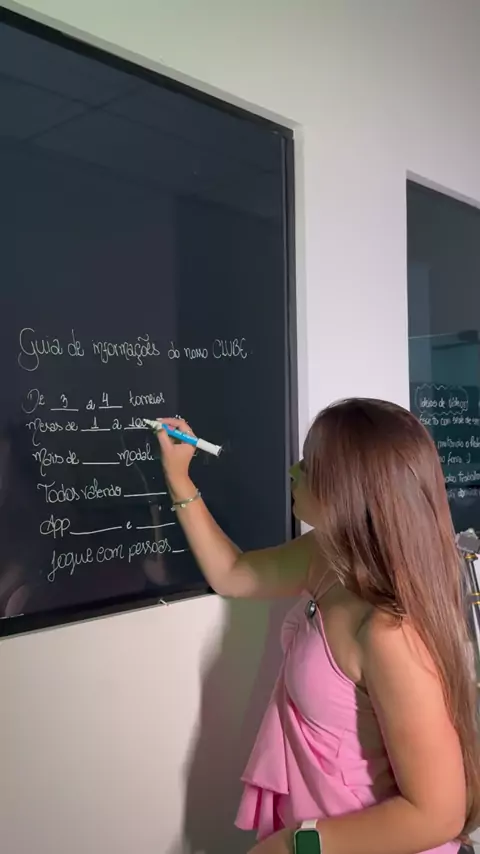 Guia de informações do nosso CLUBE
De 3 a 4 torneios
Mesas de 1 a 100
Mais de ____ modal
Todos valendo ____
App ____ e ____
Jogue com pessoas __
Ideias de